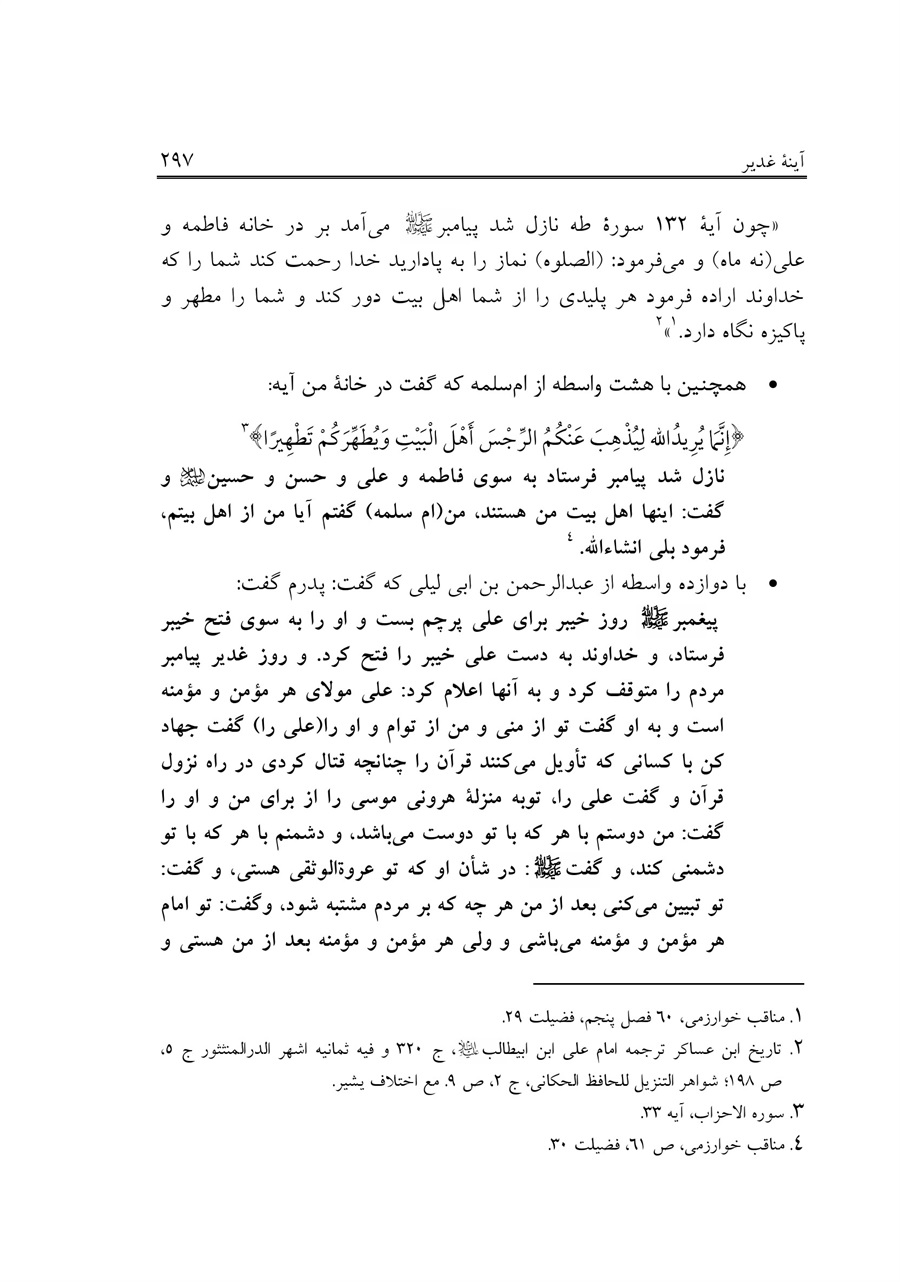 آینهٔ غدیر ۲۹۷
«چون آیهٔ ۱۳۲ سورهٔ طه نازل شد پیامبرﷺ می‌آمد بر در خانه فاطمه و
علی(نه ماه) و می‌فرمود: (الصلوه) نماز را به پادارید خدا رحمت کند شما را که
خداوند اراده فرمود هر پلیدی را از شما اهل بیت دور کند و شما را مطهر و
پاکیزه نگاه دارد.۱»۲
• همچنین با هشت واسطه از ام‌سلمه که گفت در خانهٔ من آیه:
﴿إِنَّمَا يُرِيدُالله لِيُذْهِبَ عَنْكُمُ الرِّجْسَ أَهْلَ الْبَيْتِ وَيُطَهِّرَكُمْ تَطْهِيرًا﴾۳
نازل شد پیامبر فرستاد به سوی فاطمه و علی و حسن و حسین و
گفت: اینها اهل بیت من هستند، من(ام سلمه) گفتم آیا من از اهل بیتم،
فرمود بلی انشاءالله. ۴
• با دوازده واسطه از عبدالرحمن بن ابی لیلی که گفت: پدرم گفت:
پیغمبرﷺ روز خیبر برای علی پرچم بست و او را به سوی فتح خیبر
فرستاد، و خداوند به دست علی خیبر را فتح کرد. و روز غدیر پیامبر
مردم را متوقف کرد و به آنها اعلام کرد: علی مولای هر مؤمن و مؤمنه
است و به او گفت تو از منی و من از توام و او را(علی را) گفت جهاد
کن با کسانی که تأویل می‌کنند قرآن را چنانچه قتال کردی در راه نزول
قرآن و گفت علی را، توبه منزلهٔ هرونی موسی را از برای من و او را
گفت: من دوستم با هر که با تو دوست می‌باشد، و دشمنم با هر که با تو
دشمنی کند، و گفتﷺ: در شأن او که تو عروةالوثقی هستی، و گفت:
تو تبیین می‌کنی بعد از من هر چه که بر مردم مشتبه شود، وگفت: تو امام
هر مؤمن و مؤمنه می‌باشی و ولی هر مؤمن و مؤمنه بعد از من هستی و
۱. مناقب خوارزمی، ۶۰ فصل پنجم، فضیلت ۲۹.
۲. تاریخ ابن عساکر ترجمه امام علی ابن ابیطالب، ج ۳۲۰ و فیه ثمانیه اشهر الدرالمنثثور ج ۵،
ص ۱۹۸؛ شواهر التنزیل للحافظ الحکانی، ج ۲، ص ۹. مع اختلاف یشیر.
۳. سوره الاحزاب، آیه ۳۳.
۴. مناقب خوارزمی، ص ۶۱، فضیلت ۳۰.